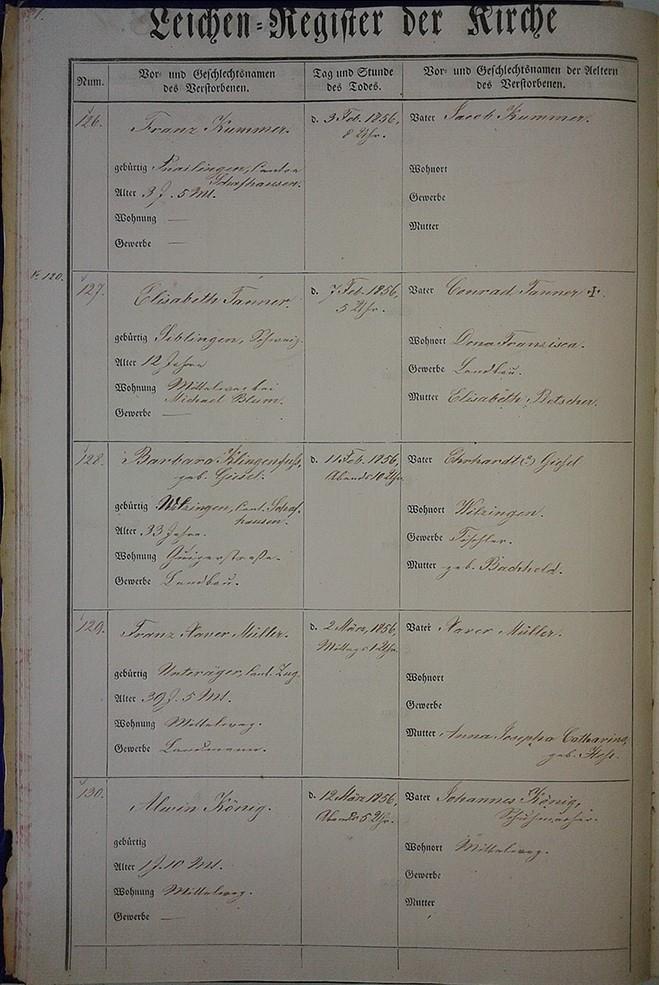 Leichen-Register der Kirche
Num.
Vor- und Geschlechtsnamen
des Verstorbenen.
Tag und Stunde
des Todes.
Vor- und Geschlechtsnamen der Aeltern
des Verstorbenen.
126.
Franz Kummer.
gebürtig Canton
Schafhausen.
Alter 3 J. 5 Mt.
Wohnung —
Gewerbe —
d. 3 Feb. 1856,
8 Uhr.
Vater Jacob Kummer.
Wohnort
Gewerbe
Mutter
127.
Elisabeth Tanner.
gebürtig Siblingen, Schweiz.
Alter 12 Jahre
Wohnung Mittelweg bei
Michael Blum.
Gewerbe —
d. 7 Feb. 1856,
5 Uhr.
Vater Conrad Tanner
Wohnort Dona Franzisca.
Gewerbe Landbau.
Mutter Elisabeth
128.
Barbara Klingenfuss,
geb. Giesel.
gebürtig Cant. Schaf-
hausen.
Alter 33 Jahre.
Wohnung
Gewerbe Landbau.
d. 11 Feb. 1856,
Abends 10 Uhr
Vater Ehrhardt (?) Giesel
Wohnort
Gewerbe Tischler.
Mutter geb. Bachhold.
129.
Franz Xaver Müller.
gebürtig Unteräger, Cant. Zug.
Alter 39 J. 5 Mt.
Wohnung Mittelweg.
Gewerbe Landmann.
d. 2 März, 1856,
Mittags 1 Uhr.
Vater Xaver Müller.
Wohnort
Gewerbe
Mutter Anna Josepha Catharina,
geb.
130.
Alwin König.
gebürtig
Alter 1 J. 10 Mt.
Wohnung Mittelweg.
Gewerbe —
d. 12 März, 1856,
Abends 5 Uhr.
Vater Johannes König,
Schuhmacher.
Wohnort Mittelweg.
Gewerbe
Mutter